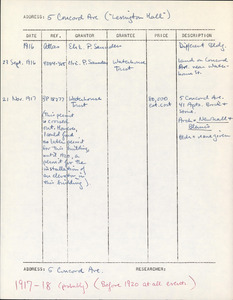 ADDRESS: 5 Concord Ave ("Lexington Hall")
DATE REF. GRANTOR GRANTEE PRICE DESCRIPTION
1916 Atlas Eh. L. P. Saunders Different Bldg.
27 Sept. 1916 Eh. L. P. Saunders Waterhouse Trust Land on Concord Ave. near Waterhouse St.
21 Nov. 1917 BP 18277 Waterhouse Trust 80,000 est. cost 5 Concord Ave.
41 Apts. Brick &
Arch = Newhall &
Blevins
(This permit
is crossed
out. However,
I could find
no later permit
for this building
until 1920, a
permit for the
installation of
an elevator in
this building)
ADDRESS: 5 Concord Ave. RESEARCHER:
1917-18 (probably) (Before 1920 at all events.)